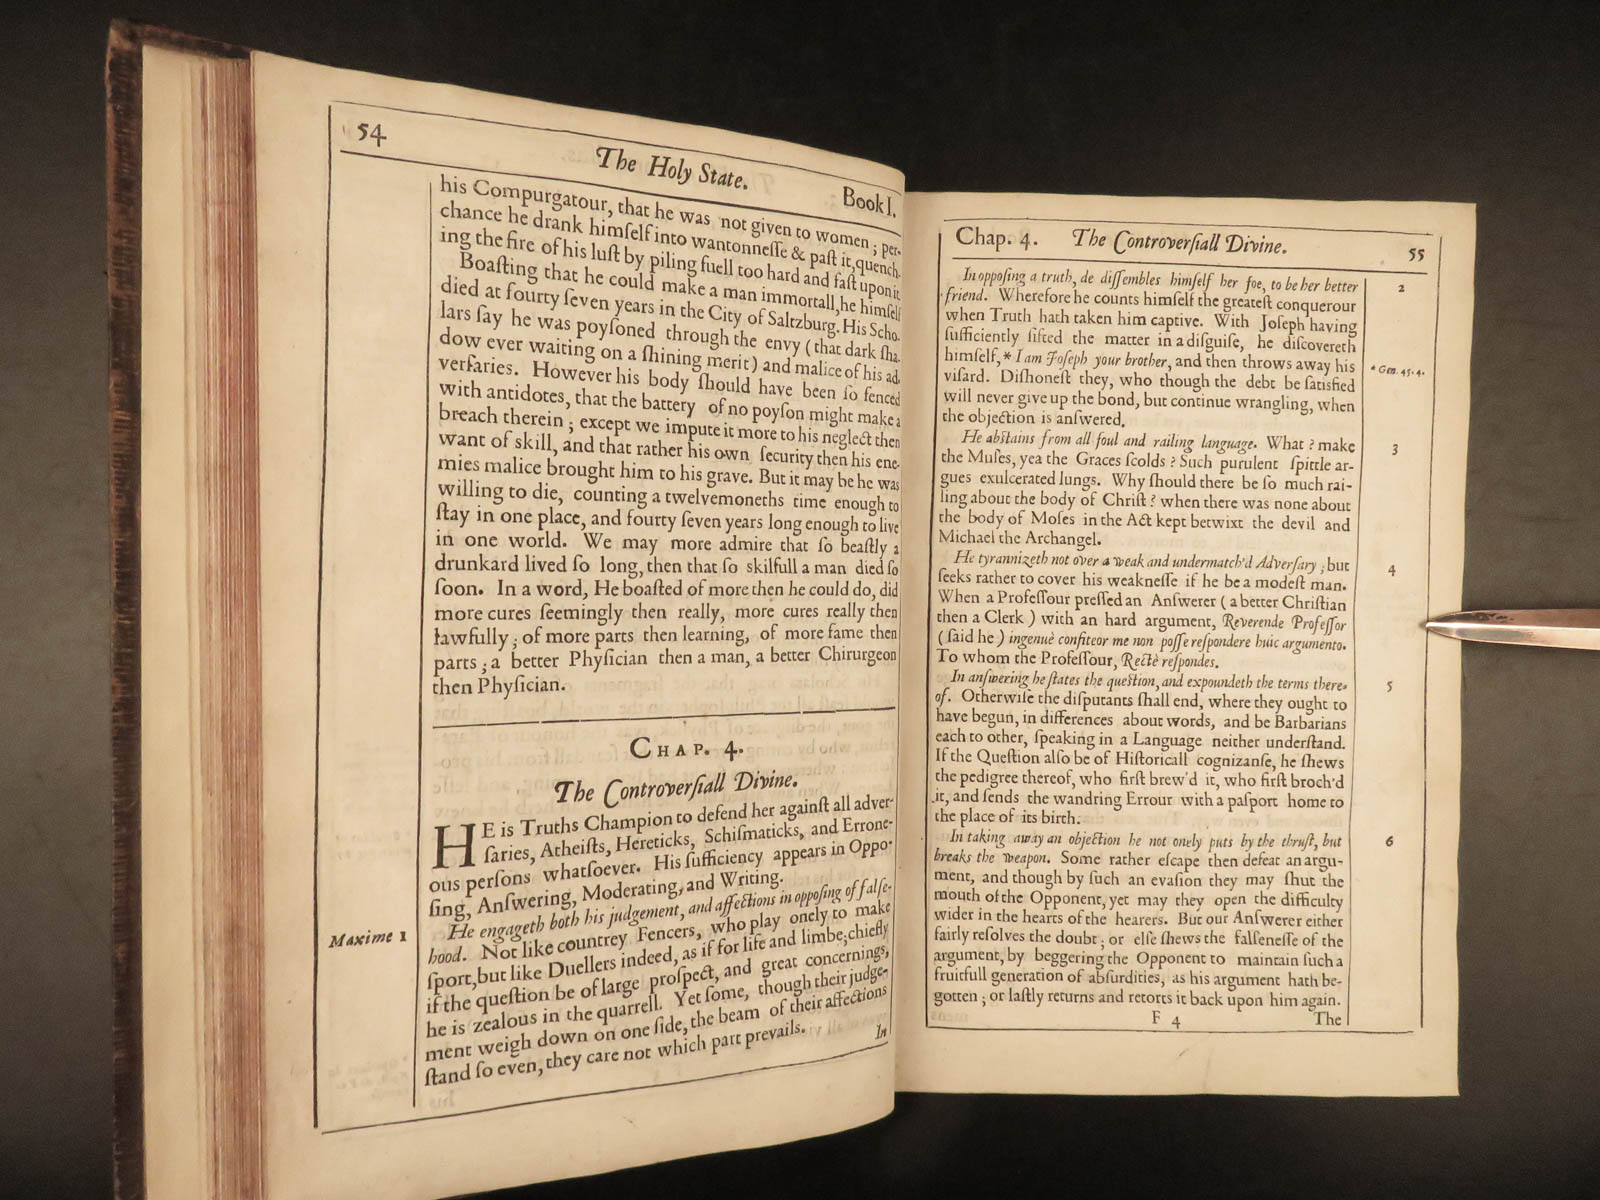 54
The Holy State.
Book I.
his Compurgatour, that he was not given to women; per-
chance he drank himſelf into wantonneſſe & paſt it, quench-
ing the fire of his luſt by piling fuell too hard and faſt upon it.
Boaſting that he could make a man immortall, he himſelf
died at fourty ſeven years in the City of Saltzburg. His Scho-
lars ſay he was poyſoned through the envy (that dark ſha-
dow ever waiting on a ſhining merit) and malice of his ad-
verſaries. However his body ſhould have been ſo fenced
with antidotes, that the battery of no poyſon might make a
breach therein; except we impute it more to his neglect then
want of skill, and that rather his own ſecurity then his ene-
mies malice brought him to his grave. But it may be he was
willing to die, counting a twelvemoneths time enough to
ſtay in one place, and fourty ſeven years long enough to live
in one world. We may more admire that ſo beaſtly a
drunkard lived ſo long, then that ſo skilfull a man died ſo
ſoon. In a word, He boaſted of more then he could do, did
more cures ſeemingly then really, more cures really then
lawfully; of more parts then learning, of more fame then
parts; a better Phyſician then a man, a better Chirurgeon
then Phyſician.
CHAP. 4.
The Controverſiall Divine.
HE is Truths Champion to defend her againſt all adver-
ſaries, Atheiſts, Hereticks, Schiſmaticks, and Errone-
ous perſons whatſoever. His ſufficiency appears in Oppo-
ſing, Anſwering, Moderating, and Writing.
Maxime 1
He engageth both his judgement, and affections in oppoſing of falſe-
hood. Not like countrey Fencers, who play onely to make
ſport, but like Duellers indeed, as if for life and limbe; chiefly
if the queſtion be of large proſpect, and great concernings,
he is zealous in the quarrell. Yet ſome, though their judge-
ment weigh down on one ſide, the beam of their affections
ſtand ſo even, they care not which part prevails.
In
Chap. 4.
The Controverſiall Divine.
55
In oppoſing a truth, he diſſembles himſelf her foe, to be her better
2
friend. Wherefore he counts himſelf the greateſt conquerour
when Truth hath taken him captive. With Joſeph having
ſufficiently ſifted the matter in a diſguiſe, he diſcovereth
himſelf, * I am Joſeph your brother, and then throws away his
* Gen. 45. 4.
viſard. Diſhoneſt they, who though the debt be ſatisfied
will never give up the bond, but continue wrangling, when
the objection is anſwered.
He abſtains from all foul and railing language. What? make
3
the Muſes, yea the Graces ſcolds? Such purulent ſpittle ar-
gues exulcerated lungs. Why ſhould there be ſo much rai-
ling about the body of Chriſt? when there was none about
the body of Moſes in the Act kept betwixt the devil and
Michael the Archangel.
He tyrannizeth not over a weak and undermatch'd Adverſary; but
4
ſeeks rather to cover his weakneſſe if he be a modeſt man.
When a Profeſſour preſſed an Anſwerer (a better Chriſtian
then a Clerk) with an hard argument, Reverende Profeſſor
(ſaid he) ingenuè confiteor me non poſſe reſpondere huic argumento.
To whom the Profeſſour, Rectè reſpondes.
In anſwering he ſtates the queſtion, and expoundeth the terms there-
5
of. Otherwiſe the diſputants ſhall end, where they ought to
have begun, in differences about words, and be Barbarians
each to other, ſpeaking in a Language neither underſtand.
If the Queſtion alſo be of Hiſtoricall cognizanſe, he ſhews
the pedigree thereof, who firſt brew'd it, who firſt broch'd
it, and ſends the wandring Errour with a paſport home to
the place of its birth.
In taking away an objection he not onely puts by the thruſt, but
6
breaks the weapon. Some rather eſcape then defeat an argu-
ment, and though by ſuch an evaſion they may ſhut the
mouth of the Opponent, yet may they open the difficulty
wider in the hearts of the hearers. But our Anſwerer either
fairly reſolves the doubt; or elſe ſhews the falſeneſſe of the
argument, by beggering the Opponent to maintain ſuch a
fruitfull generation of abſurdities, as his argument hath be-
gotten; or laſtly returns and retorts it back upon him again.
F 4
The